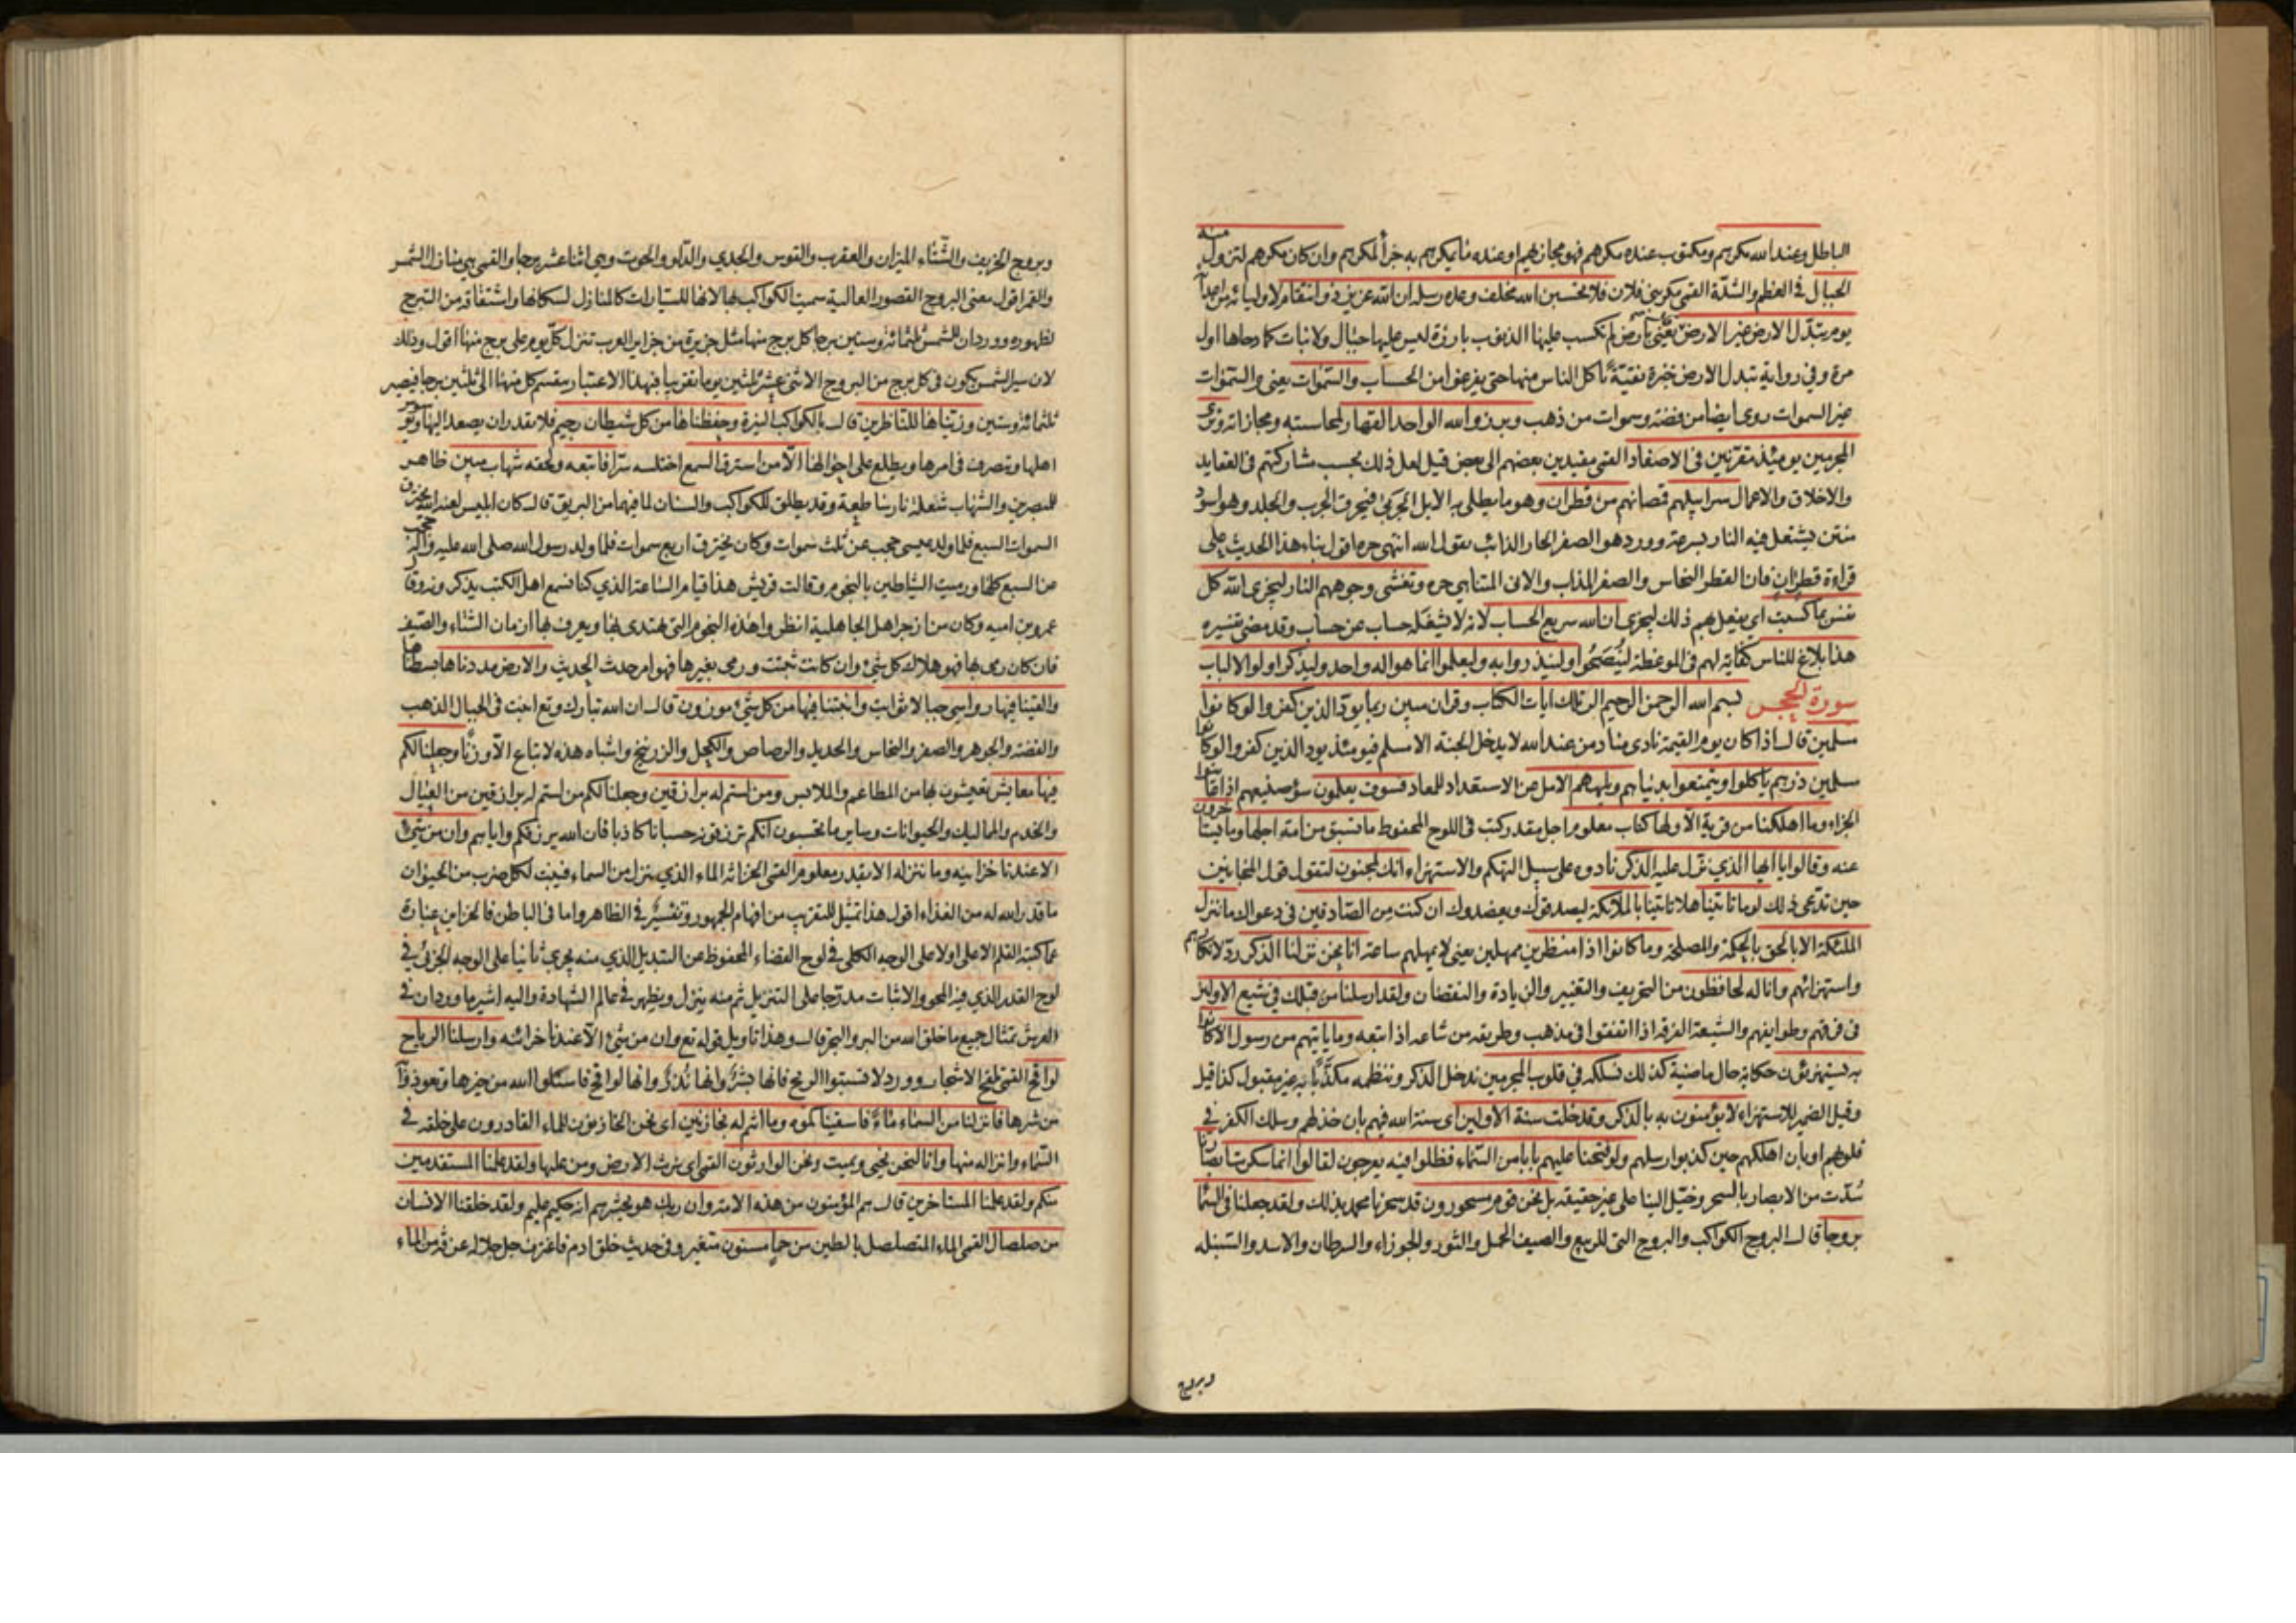 الباطل وعند الله مكرهم ومكتوب عنده مكرهم فهو مجازيهم او عنده ما يمكرهم به جزاء لمكرهم وان كان مكرهم لتزول منه
الجبال في العظم والشدّة القمي مكر بني فلان فلا تحسبن الله مخلف وعده رسله ان الله عزيز ذو انتقام لاوليائه من اعدائه
يوم تبدّل الارض غير الارض يعني بأرض لم تكسب عليها الذنوب بارزة ليس عليها جبال ولا نبات كما دحاها اول
مرة وفي رواية تبدل الارض خبزة نقيّة يأكل الناس منها حتى يفرغوا من الحساب والسّموات يعني والسّموات
غير السموات روى ايضا من فضة وسموات من ذهب وبرزوا لله الواحد القهار لمحاسبته ومجازاته وترى
المجرمين يومئذ مقرّنين في الاصفاد القمي مقيدين بعضهم الى بعض قيل لعل ذلك بحسب مشاركتهم في العقايد
والاخلاق والاعمال سرابيلهم قمصانهم من قطران وهو ما يطلى به الابل الجربى فيحرق الجرب والجلد وهو اسود
منتن يشتعل فيه النار بسرعة وورد هو الصفر الحار الذائب يقول الله انتهى حره اقول بناء هذا الحديث على
قراءة قطرٍ اٰنٍ فان القطر النحاس والصفر المذاب والانى المتناهي حره وتغشى وجوههم النار ليجزى الله كل
نفس بما كسبت اي يفعل بهم ذلك ليجزى ان الله سريع الحساب لانه لا يشغله حساب عن حساب وقد مضى تفسيره
هذا بلاغ للناس كفاية لهم في الموعظة ليُنصَحوا ولينذروا به وليعلموا انما هو اله واحد وليذكر اولوا الالباب
سورة الحجر بسم الله الرحمن الرحيم الر تلك ايات الكتاب وقران مبين ربما يودّ الذين كفروا لو كانوا
مسلمين قال اذا كان يوم القيمة نادى مناد من عند الله لا يدخل الجنة الا مسلم فيومئذ يود الذين كفروا لو كانوا
مسلمين ذرهم يأكلوا ويتمتعوا بدنياهم ويلههم الامل عن الاستعداد للمعاد فسوف يعلمون سوء صنيعهم اذا عاينوا
الجزاء وما اهلكنا من قرية الّا ولها كتاب معلوم اجل مقدر كتب في اللوح المحفوظ ما تسبق من امة اجلها وما يستأخرون
عنه وقالوا يا ايها الذي نزّل عليه الذكر نادوه على سبيل التهكم والاستهزاء انك لمجنون لتقول قول المجانين
حين تدعي ذلك لوما تاتينا هلا تاتينا بالملائكة ليصدقوك ويعضدوك ان كنت من الصّادقين في دعواك ما ننزل
الملئكة الا بالحق بالحكمة والمصلحة وما كانوا اذا منظرين ممهلين يعني لا يمهلهم ساعة انا نحن نزلنا الذكر ردّ لانكارهم
واستهزائهم وانا له لحافظون من التحريف والتغيير والزيادة والنقصان ولقد ارسلنا من قبلك في شيع الاولين
في فرقهم وطوايفهم والشيعة الفرقة اذا اتفقوا في مذهب وطريقة من شاعه اذا تبعه وما ياتيهم من رسول الا كانوا
به يستهزؤن حكاية حال ماضية كذلك نسلكه في قلوب المجرمين ندخل الذكر وننظمه مكذّبا به غير مقبول كذا قيل
وقيل الضمير للاستهزاء لا يؤمنون به بالذكر وقد خلت سنة الاولين اى سنة الله فيهم بان خذلهم وسلك الكفر في
قلوبهم او بان اهلكهم حين كذبوا رسلهم ولو فتحنا عليهم بابا من السّماء فظلوا فيه يعرجون لقالوا انما سكرت ابصارنا
سُدّت من الابصار بالسحر وخيّل الينا على غير حقيقة بل نحن قوم مسحورون قد سحرنا محمد بذلك ولقد جعلنا في السّماء
بروجا قال البروج الكواكب والبروج التي للربيع والصيف الحمل والثور والجوزاء والسرطان والاسد والسّنبلة
وبروج
وبروج الخريف والشّتاء الميزان والعقرب والقوس والجدي والدّلو والحوت وهي اثنا عشر برجا والقمي هي منازل الشمس
والقمر اقول معنى البروج القصور العالية سميت الكواكب بها لانها للسيّارات كالمنازل لسكانها واشتقاقه من التبرج
لظهوره وورد ان للشمس ثلثمائة وستين برجا كل برج منها مثل جزيرة من جزاير العرب تنزل كلّ يوم على برج منها اقول وذلك
لان سير الشمس يكون في كل برج من البروج الاثنى عشر ثلثين يوما تقريبا فبهذا الاعتبار ينقسم كل منها الى ثلثين برجا فيصير
ثلثمائة وستين وزيّناها للنّاظرين قال بالكواكب النيرة وحفظناها من كل شيطان رجيم فلا يقدر ان يصعد اليها ويوسوس
اهلها وتصرف في امرها ويطلع على احوالها الّا من استرق السمع اختلسه سرّا فاتبعه ولحقه شهاب مبين ظاهر
للمبصرين والشهاب شعلة نار ساطعة وقد يطلق للكواكب والسنان لما فيهما من البريق قال كان ابليس لعنه الله يخترق
السموات السبع فلما ولد عيسى حجب عن ثلث سموات وكان يخترق اربع سموات فلما ولد رسول الله صلى الله عليه واله حجب
عن السبع كلها ورميت الشياطين بالنجوم وقالت قريش هذا قيام الساعة الذي كنا نسمع اهل الكتب يذكرونه وقال
عمرو بن اميه وكان من ازجر اهل الجاهلية انظروا هذه النجوم التي يهتدى بها ويعرف بها ازمان الشتاء والصّيف
فان كان رمى بها فهو هلاك كل شيء وان كانت ثبتت ورمى بغيرها فهو امر حدث الحديث والارض مددناها بسطناها
والقينا فيها رواسي جبالا ثوابت وانبتنا فيها من كل شيء موزون قال ان الله تبارك وتع انبت في الجبال الذهب
والفضة والجوهر والصفر والنحاس والحديد والرصاص والكحل والزرنيخ واشباه هذه لا تباع الّا وزنا وجعلنا لكم
فيها معايش تعيشون بها من المطاعم والملابس ومن لستم له برازقين وجعلنا لكم من لستم له برازقين من العيال
والخدم والمماليك والحيوانات وساير ما تحسبون انكم ترزقونه حسبانا كاذبا فان الله يرزقكم واياهم وان من شيء
الا عندنا خزاينه وما ننزله الا بقدر معلوم القمي الخزانة الماء الذي ينزل من السماء فينبت لكل ضرب من الحيوان
ما قدر الله له من الغذاء اقول هذا تمثيل للتقريب من افهام الجمهور وتفسير في الظاهر واما في الباطن فالخزاين عبارة
عما كتبه القلم الاعلى اولا على الوجه الكلي في لوح القضاء المحفوظ عن التبديل الذي منه يجري ثانيا على الوجه الجزئي في
لوح القدر الذي فيه المحو والاثبات مدرّجا على التنزيل ثم منه ينزل ويظهر في عالم الشهادة واليه اشير ما ورد ان في
العرش تمثال جميع ما خلق الله من البر والبحر قال وهذا تاويل قوله تع وان من شيء الّا عندنا خزائنه وارسلنا الرياح
لواقح القمي تلقح الاشجار وورد لا تسبّوا الريح فانها بشر وانها نذر وانها لواقح فاسئلوا الله من خيرها وتعوذوا
من شرها فانزلنا من السماء ماء فاسقيناكموه وما انتم له بخازنين اى نحن الخازنون للماء القادرون على خلقه في
السّماء وانزاله منها وانا لنحن نحيي ونميت ونحن الوارثون القمي اى نرث الارض ومن عليها ولقد علمنا المستقدمين
منكم ولقد علمنا المستاخرين قال هم المؤمنون من هذه الامة وان ربك هو يحشرهم انه حكيم عليم ولقد خلقنا الانسان
من صلصال القمي الماء المتصلصل بالطين من حماٍ مسنون متغير وفي حديث خلق ادم فاغترف جل جلاله غرفة من الماء